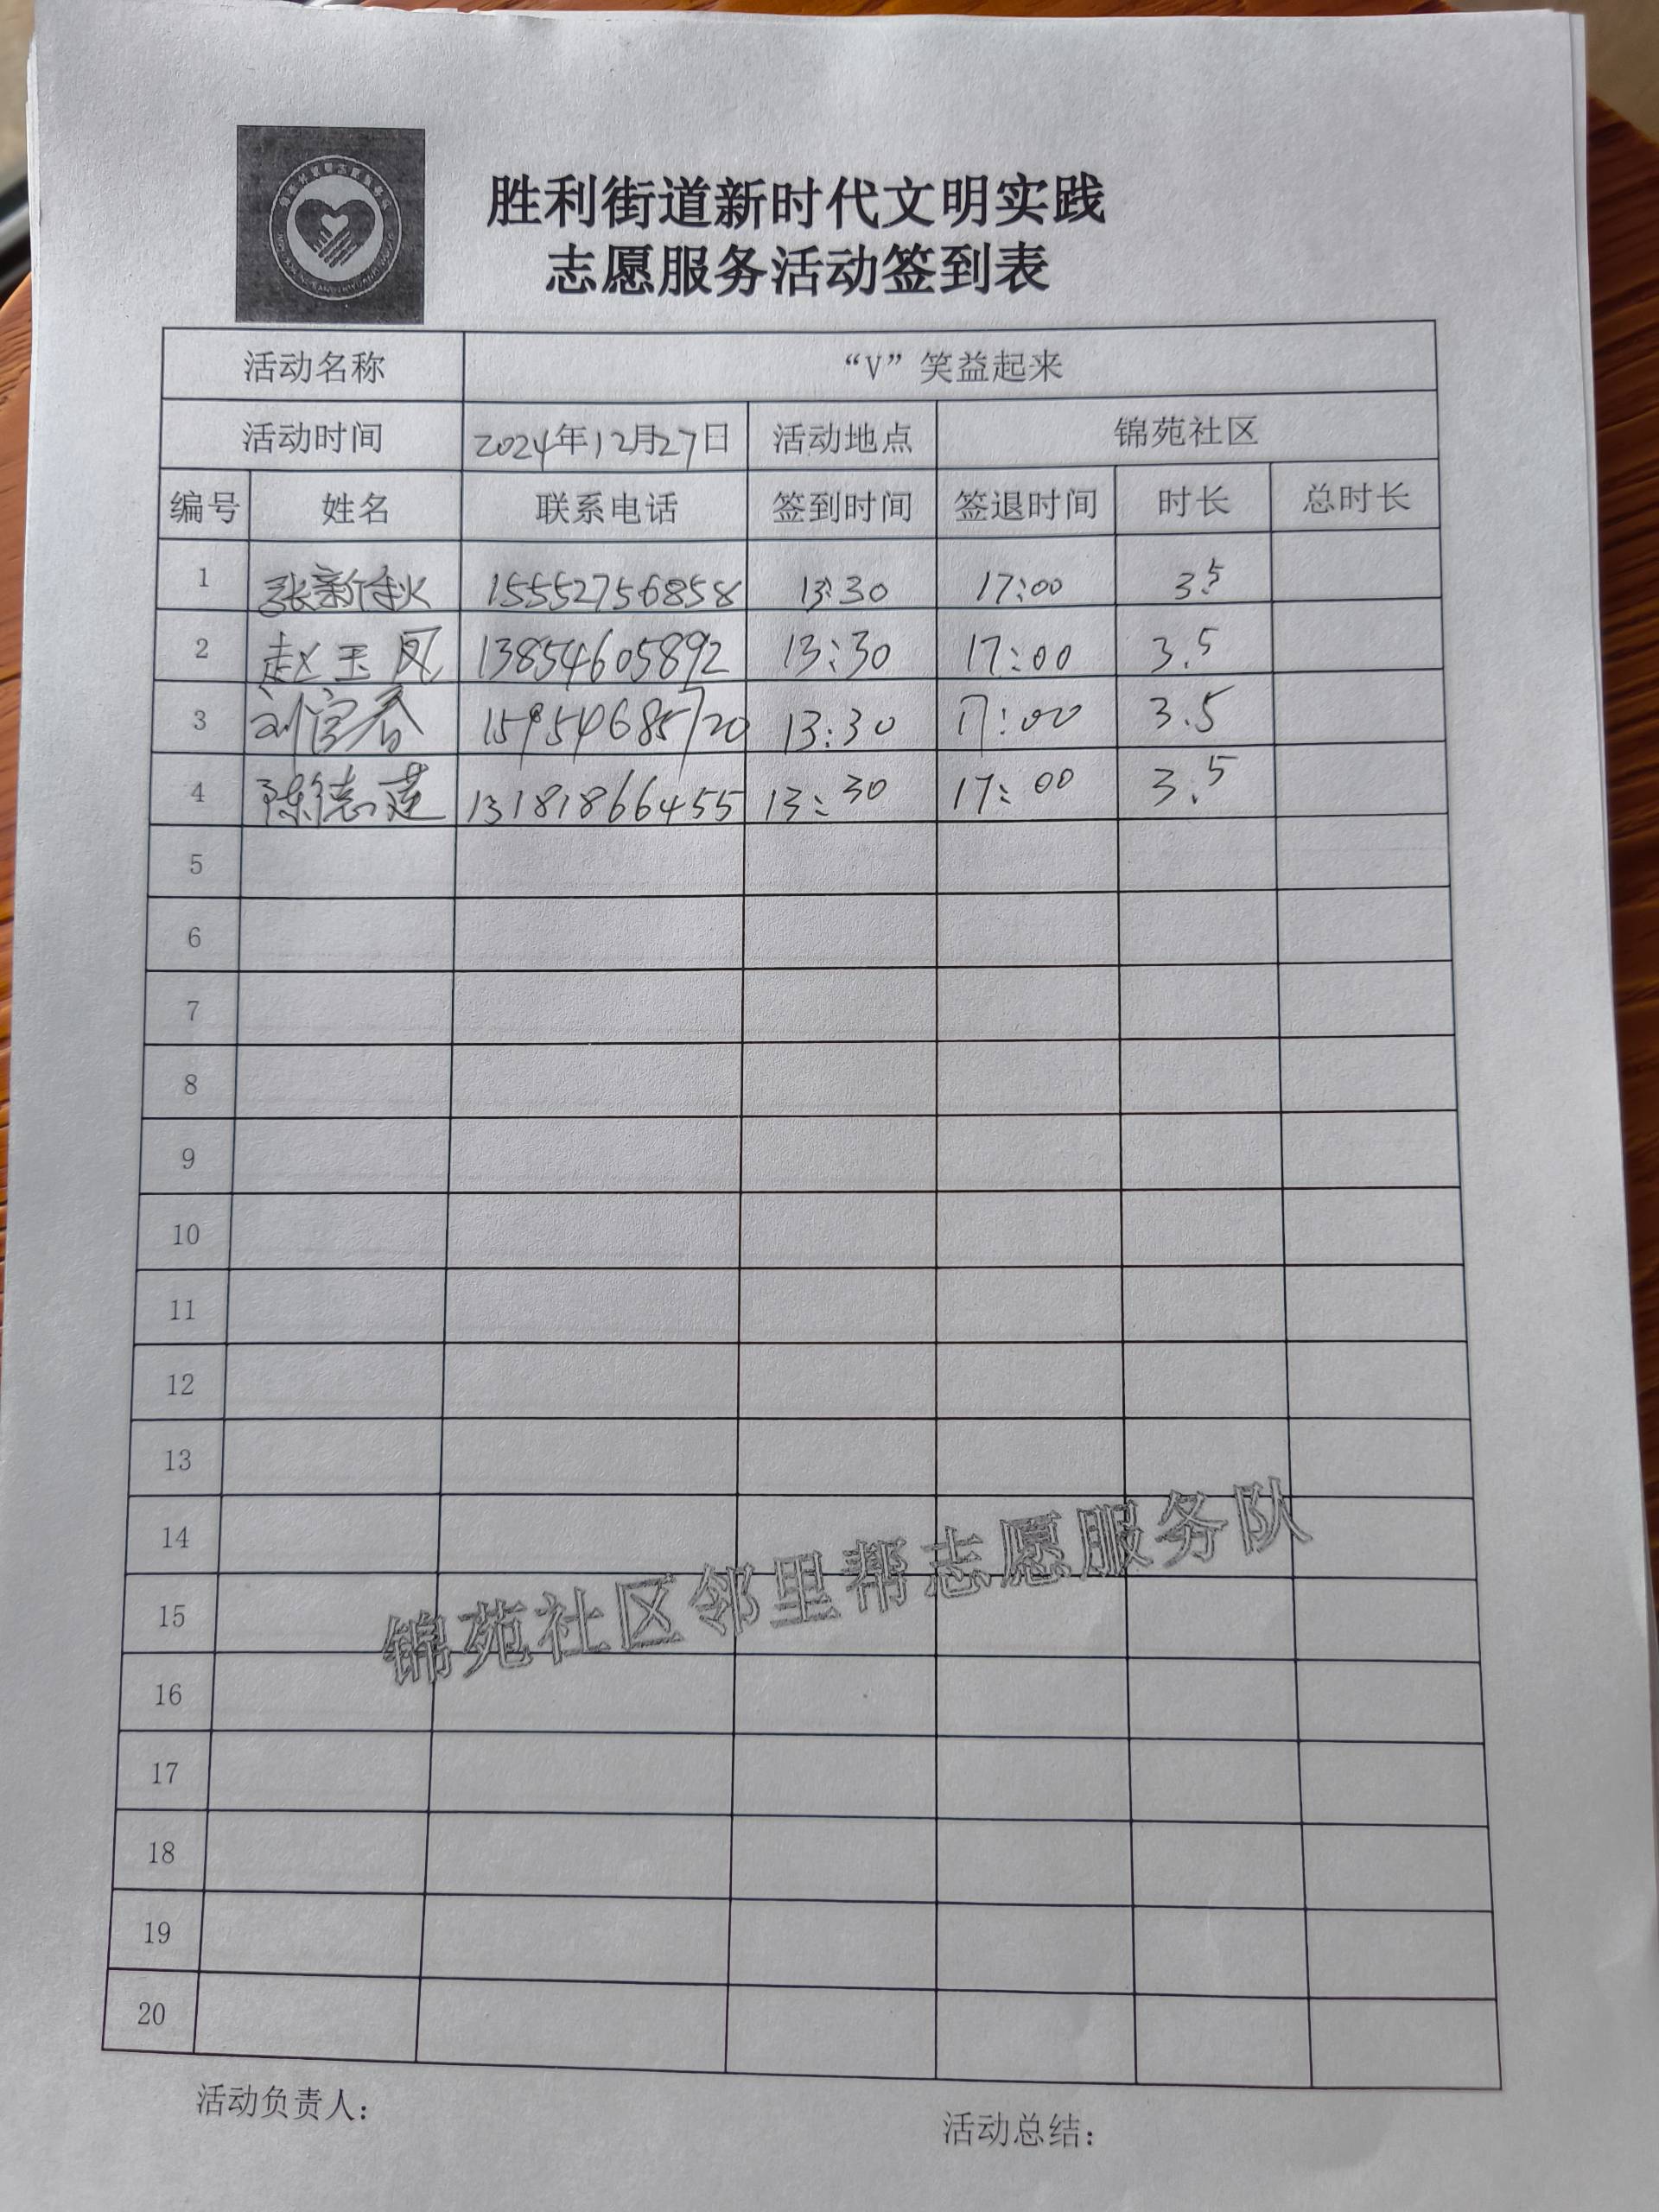 胜利街道新时代文明实践
志愿服务活动签到表
活动名称 “V”笑益起来
活动时间 2024年12月27日 活动地点 锦苑社区
编号 姓名 联系电话 签到时间 签退时间 时长 总时长
1 张新秋 15552756858 13:30 17:00 3.5
2 赵玉凤 13854605892 13:30 17:00 3.5
3 刘官香 15954685720 13:30 17:00 3.5
4 陈德莲 13181866455 13:30 17:00 3.5
5
6
7
8
9
10
11
12
13
14
15
16
17
18
19
20
锦苑社区邻里帮志愿服务队
活动负责人：
活动总结：